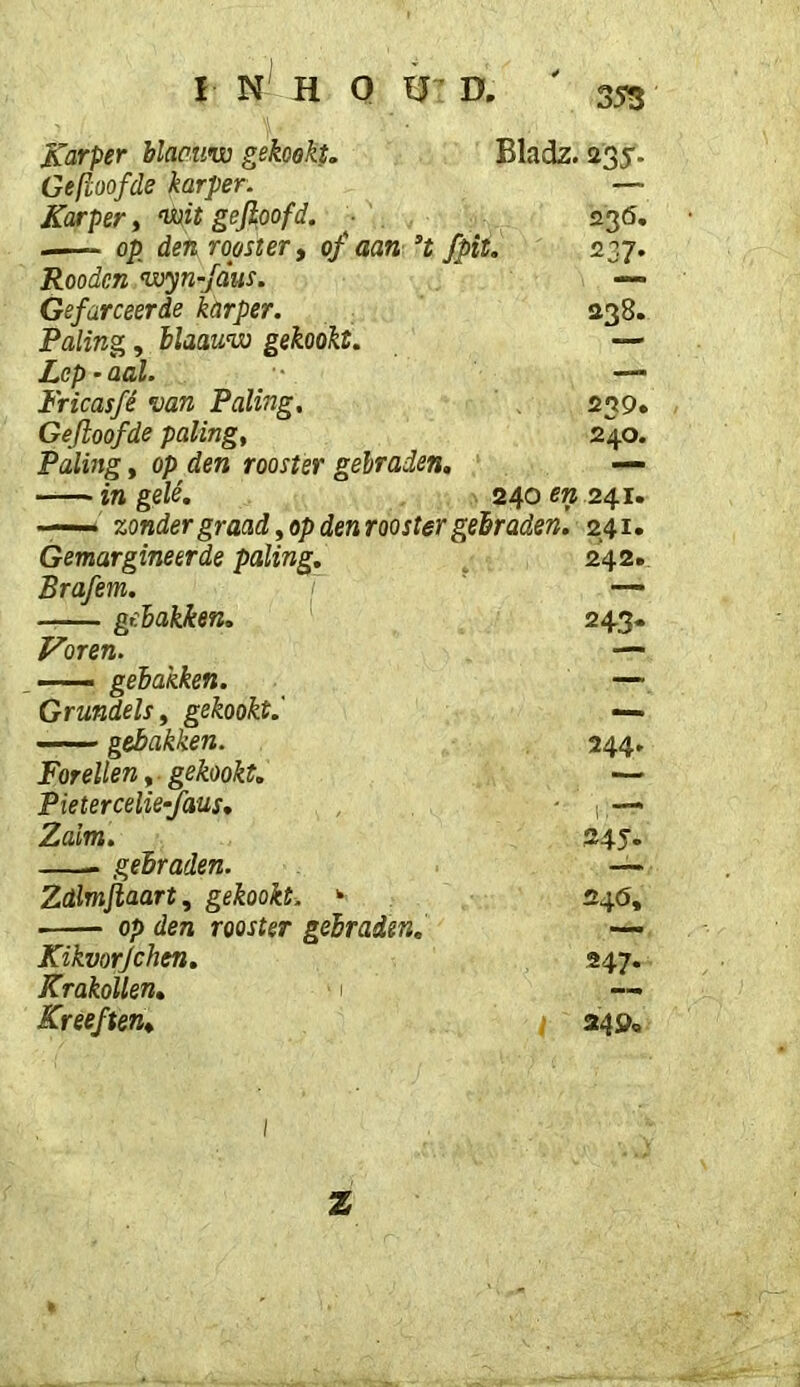 INHOUD. 353
Karper blaauw gekookt. Bladz. 235.
Geſtoofde karper. —
Karper, wit geſtoofd. 236.
—— op den rooster, of aan 't ſpit. 237.
Rooden wyn-ſaus. —
Gefarceerde karper. 238.
Paling, blaauw gekookt. —
Lep-aal. —
Fricasſé van Paling. 239.
Geſtoofde paling, 240.
Paling, op den rooster gebraden. —
—— in gelé. 240 en 241.
—— zonder graad, op den rooster gebraden. 241.
Gemargineerde paling. 242.
Braſem. —
—— gebakken. 243.
Voren. —
—— gebakken. —
Grundels, gekookt. —
—— gebakken. 244.
Forellen, gekookt. —
Pietercelie-ſaus. —
Zalm. 245.
—— gebraden. —
Zalmſtaart, gekookt. 246.
—— op den rooster gebraden. —
Kikvorſchen. 247.
Krakollen. —
Kreeften. 249.
Z